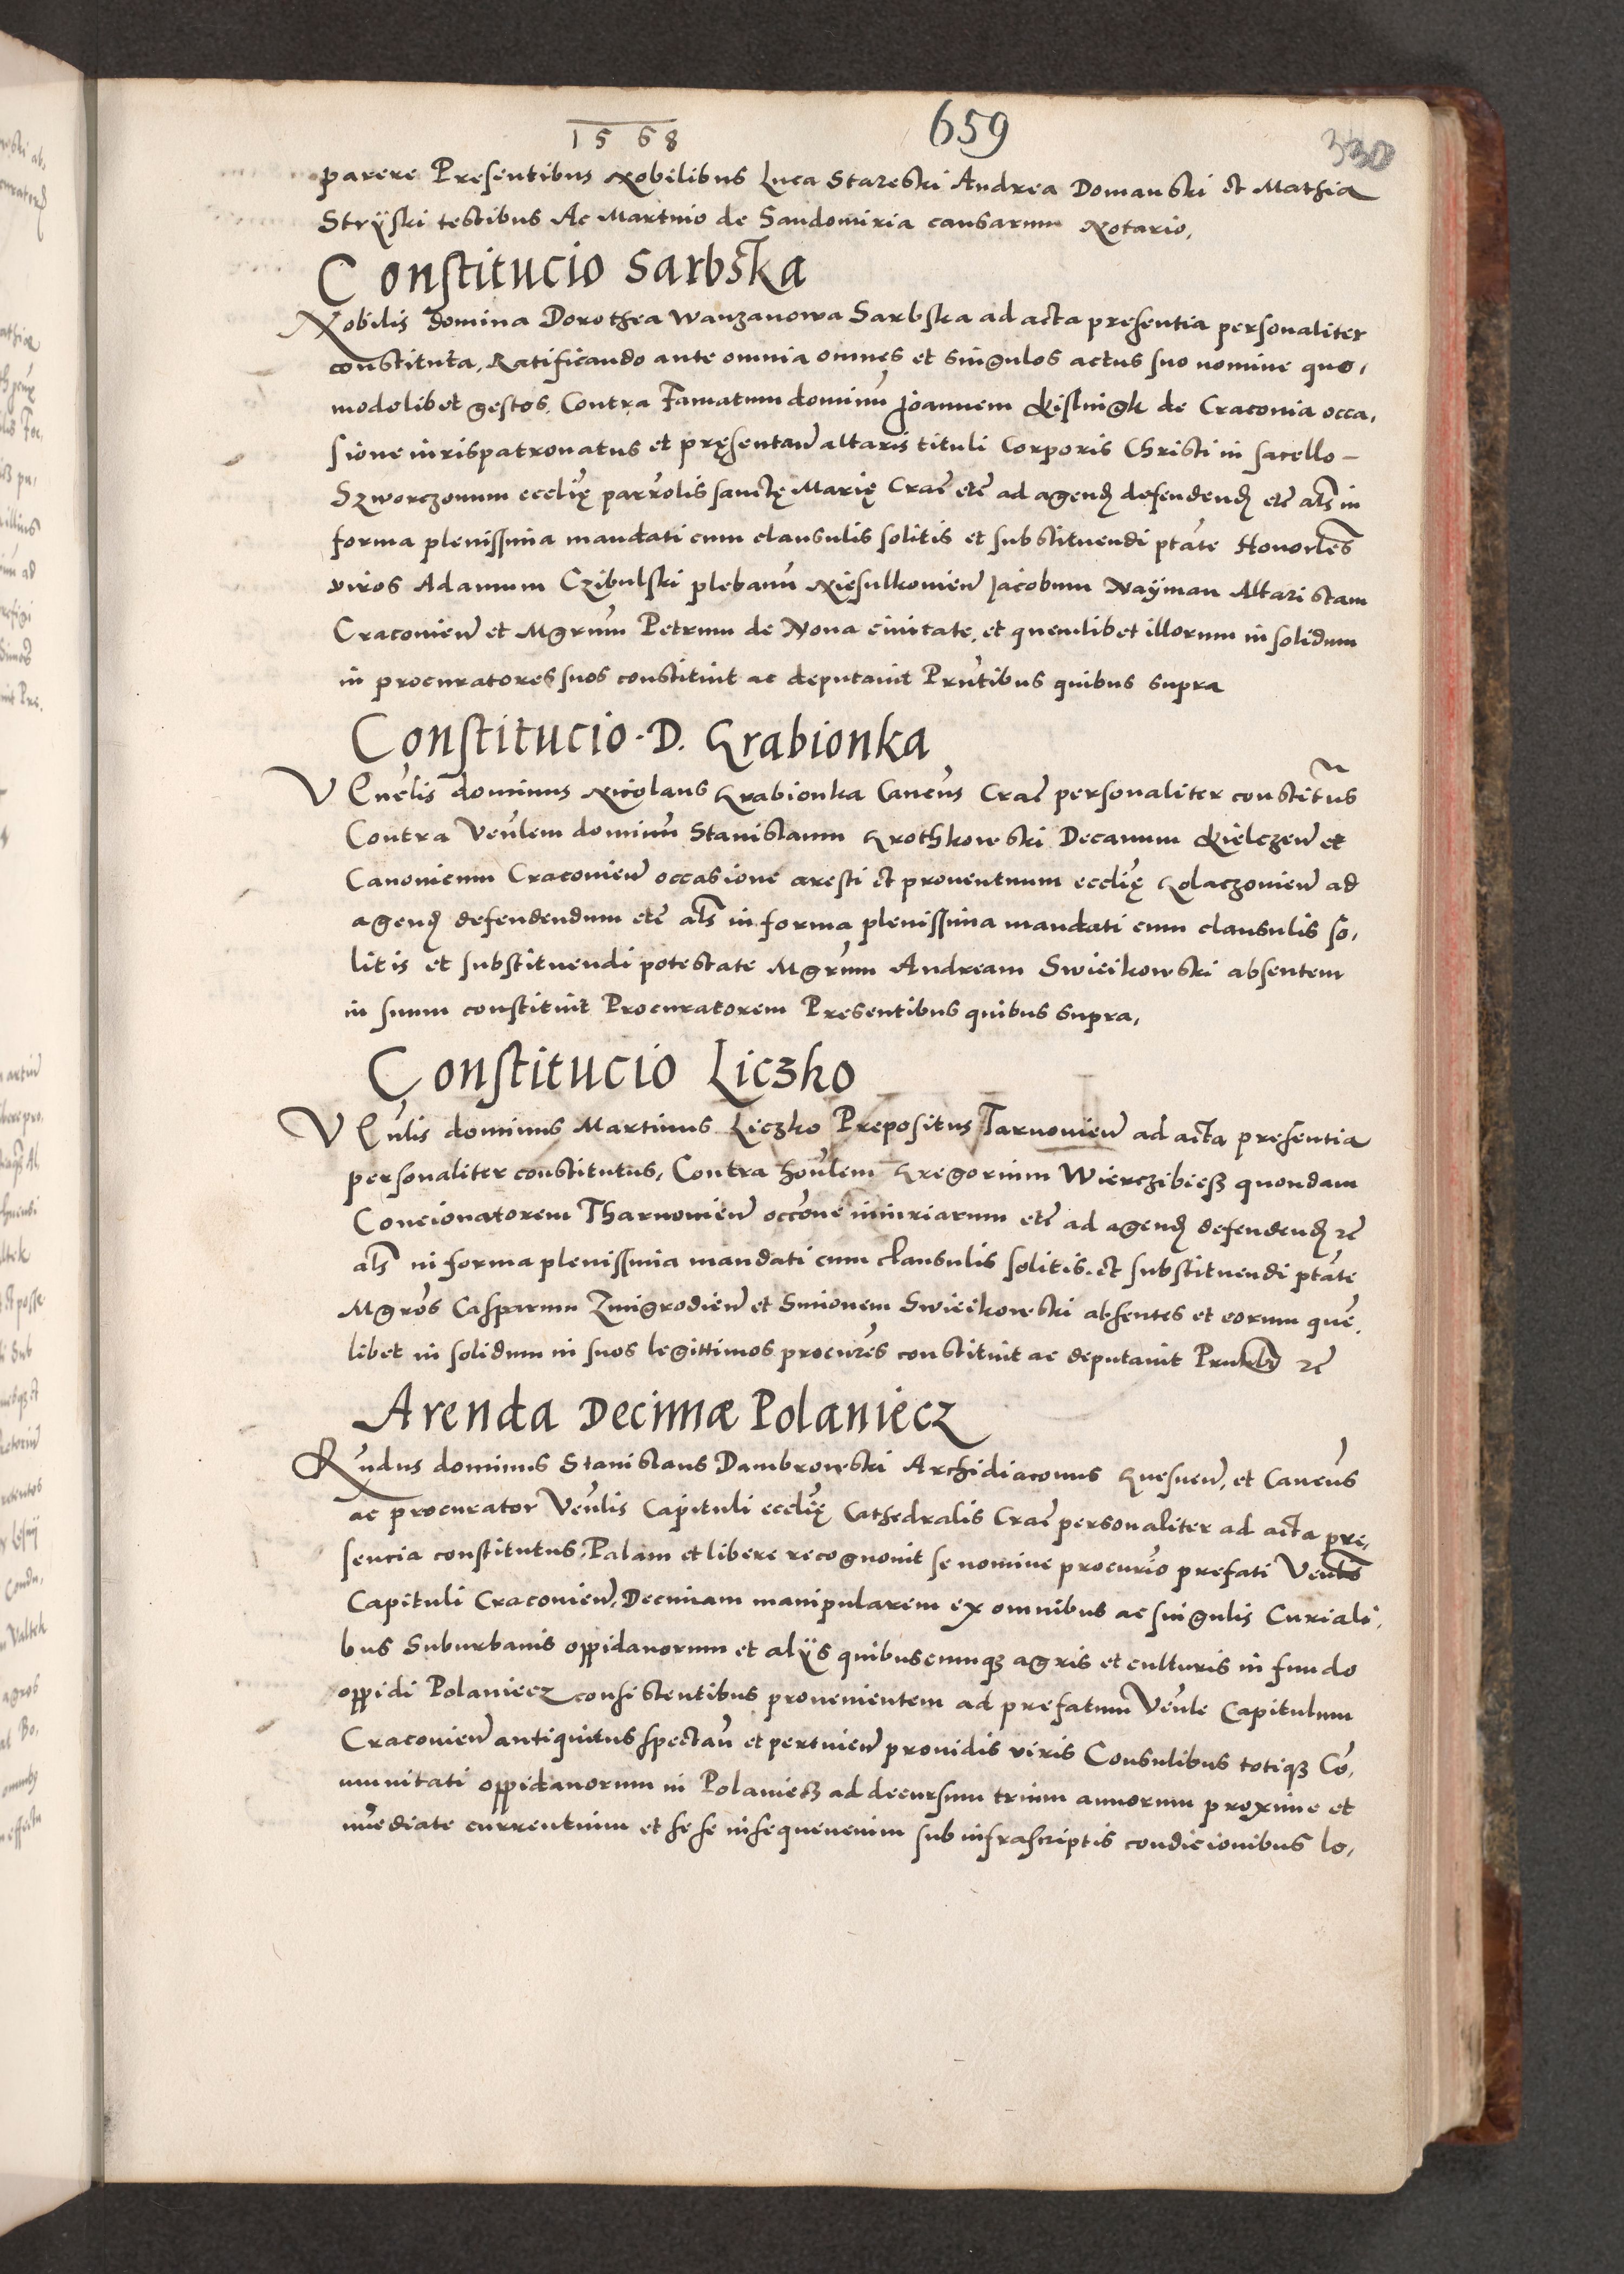 1568
659
330
parere Presentibus Nobilibus Luca Stareski Andrea Domanski et Mathia
Stryiski testibus Ac Martino de Sandomiria causarum Notario,
Constitucio Sarbska
Nobilis domina Dorothea Wanzanowa Sarbska ad acta presentia personaliter
constituta, Ratificando ante omnia omnes et singulos actus suo nomine quo,
modolibet gestos, Contra Famatum dominũ Joannem de Craconia occa,
sione iurispatronatus et pręsentan̄ altaris tituli Corporis Christi in sacello –
Szworczonum ecclię parrolis sanctę Marię Crac̄ etc̄ ad agend̨ defendend̨ etc̄ als̄ in
forma plenissima mandati cum clausulis solitis et substituendi ptāte Honorles̄
viros Adamum Czibulski plebanũ Niesulkowien̄ Jacobum Nayman Altaristam
Cracovien̄ et Mgrũm Petrum de Nova civitate, et quemlibet illorum in solidum
in procuratores suos constituit ac deputavit Prn̄tibus quibus supra
Constitucio D. Grabionka
VEnēlis dominus Nicolaus Grabionka Canc̄us Crac̄ personaliter constitũs
Contra Venl̄em dominũ Stanislaum Grothkowski Decanum Kielczen̄ et
Canonicum Cracovien̄ occasione aresti et proventuum ecclię Golaczovien̄ ad
agend̨ defendendum etc̄ als̄ in forma plenissima mandati cum clausulis so,
litis et substituendi potestate Mgrũm Andream Swieikowski absentem
in suum constituit Procuratorem Presentibus quibus supra,
Constitucio Liczko
VEnl̄is dominus Martinus Liczko Prepositus Tarnovien̄ ad acta presentia
personaliter constitutus, Contra honl̄em Gregorium Wierczibiesz quondam
Concionatorem Tharnovien̄ occōne iniuriarum etc̄ ad agend̨ defendend̨ zc̄
als̄ in forma plenissima mandati cum clausulis solitis et substituendi ptāte
Mgrōs Casparum Zmigrodien̄ et Simonem Swieikowski absentes et eorum quē,
libet in solidum in suos legittimos procurēs constituit ac deputavit Prn̄tibus zc̄
Arenda Decimæ Polaniecz
Rn̄dus dominus Stanislaus Dambrowski Archidiaconus Gnesnen̄, et Canc̄us
ac procurator Venl̄is Capituli ecclię Cathedralis Crac̄ personaliter ad acta pre,
sencia constitutus, Palam et libere recognovit se nomine procurīo prefati Venl̄is
Capituli Cracovien̄, Decimam manipularem ex omnibus ac singulis Curiali,
bus Suburbanis oppidanorum et alÿs quibuscumqʒ agris et culturis in fundo
oppidi Polaniecz consistentibus provenientem ad prefatum Venl̄e Capitulum
Cracovien̄ antiquitus spectan̄ et pertinen̄ providis viris Consulibus totiqʒ Cō,
munitati oppidanorum in Polaniecz ad decursum trium annorum proxime et
imēdiate currentium et sese insequenenim sub infrascriptis condicionibus lo,